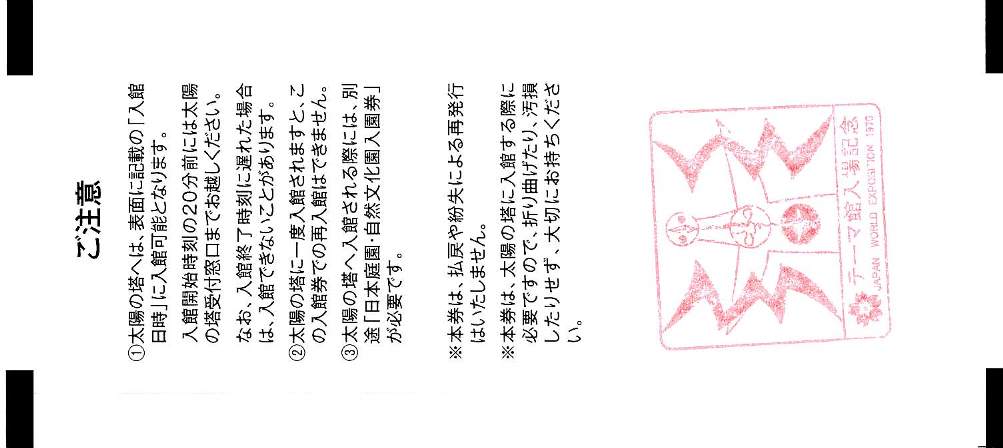 ご注意
①太陽の塔へは、表面に記載の「入館
日時」に入館可能となります。
入館開始時刻の20分前には太陽
の塔受付窓口までお越しください。
なお、入館終了時刻に遅れた場合
は、入館できないことがあります。
②太陽の塔に一度入館されますと、こ
の入館券での再入館はできません。
③太陽の塔へ入館される際には、別
途「日本庭園・自然文化園入園券」
が必要です。
※本券は、払戻や紛失による再発行
はいたしません。
※本券は、太陽の塔に入館する際に
必要ですので、折り曲げたり、汚損
したりせず、大切にお持ちくださ
い。
テーマ館入場記念
JAPAN WORLD EXPOSITION 1970